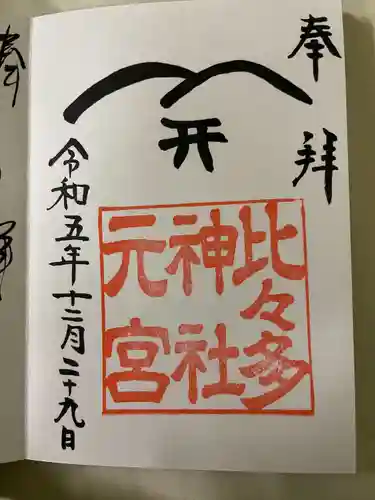 奉拝
開
比々多
神社
元宮
令和五年十二月二十九日